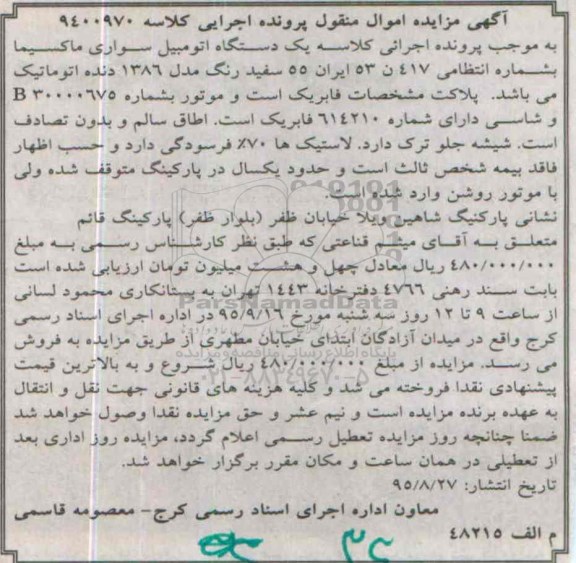 آگهی مزایده اموال منقول پرونده اجرایی کلاسه ۹۴۰۰۹۷۰
به موجب پرونده اجرائی کلاسه یک دستگاه اتومبیل سواری ماکسیما
بشماره انتظامی ۴۱۷ ن ۵۳ ایران ۵۵ سفید رنگ مدل ۱۳۸۶ دنده اتوماتیک
می باشد. پلاکت مشخصات فابریک است و موتور بشماره B ۳۰۰۰۰۶۷۵
و شاسی دارای شماره ۶۱۴۲۱۰ فابریک است. اطاق سالم و بدون تصادف
است. شیشه جلو ترک دارد. لاستیک ها ۷۰٪ فرسودگی دارد و حسب اظهار
فاقد بیمه شخص ثالث است و حدود یکسال در پارکینگ متوقف شده ولی
با موتور روشن وارد شده است.
نشانی پارکینگ شاهین ویلا خیابان ظفر (بلوار ظفر) پارکینگ قائم
متعلق به آقای میثم قناعتی که طبق نظر کارشناس رسمی به مبلغ
۴۸۰/۰۰۰/۰۰۰ ریال معادل چهل و هشت میلیون تومان ارزیابی شده است
بابت سند رهنی ۴۷۶۶ دفترخانه ۱۴۴۳ تهران به بستانکاری محمود لسانی
از ساعت ۹ تا ۱۲ روز سه شنبه مورخ ۹۵/۹/۱۶ در اداره اجرای اسناد رسمی
کرج واقع در میدان آزادگان ابتدای خیابان مطهری از طریق مزایده به فروش
می رسد. مزایده از مبلغ ۴۸۰/۰۰۰/۰۰۰ ریال شروع و به بالاترین قیمت
پیشنهادی نقدا فروخته می شد و کلیه هزینه های قانونی جهت نقل و انتقال
به عهده برنده مزایده است و نیم عشر و حق مزایده نقدا وصول خواهد شد
ضمنا چنانچه روز مزایده تعطیل رسمی اعلام گردد، مزایده روز اداری بعد
از تعطیلی در همان ساعت و مکان مقرر برگزار خواهد شد.
تاریخ انتشار: ۹۵/۸/۲۷
معاون اداره اجرای اسناد رسمی کرج- معصومه قاسمی
م الف ۴۸۲۱۵
ParsNamadData
پایگاه اطلاع رسانی مناقصه و مزایده
۰۲۱-۸۸۳۴۹۶۷۰-۵